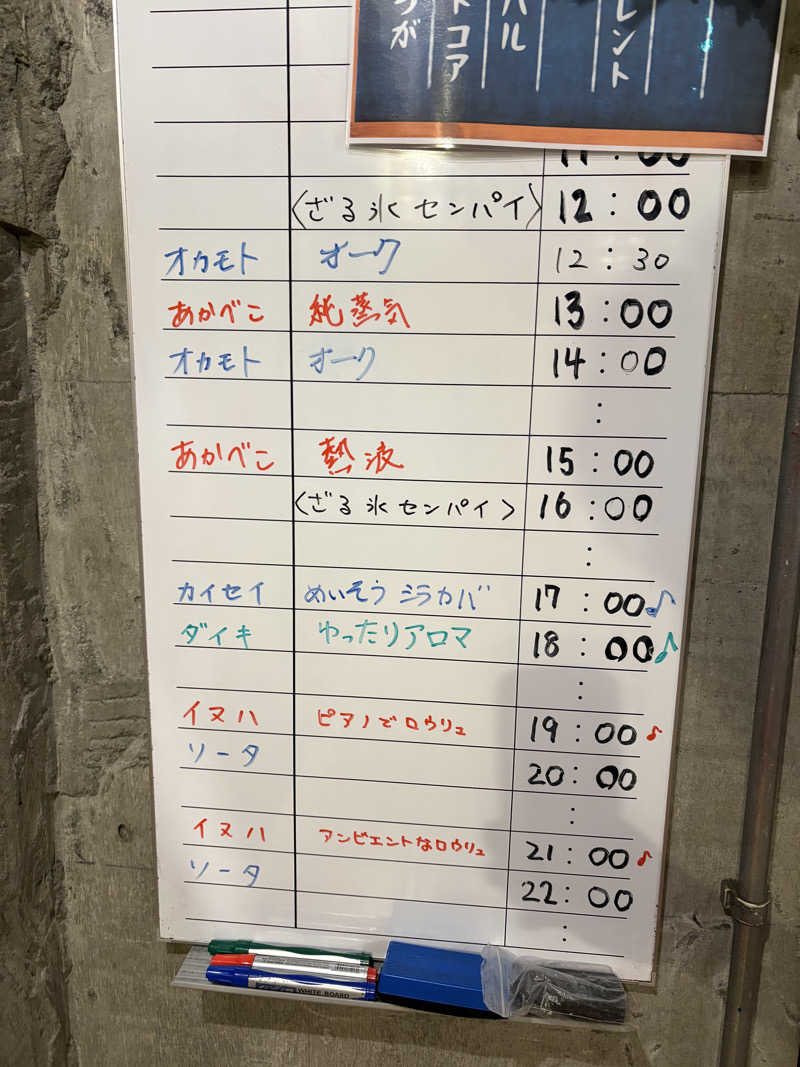 うが
トコア
バル
レント
11:00
〈ざる氷センパイ〉 12:00
オカモト オーク 12:30
あかべこ 純蒸気 13:00
オカモト オーク 14:00
:
あかべこ 熱波 15:00
〈ざる氷センパイ〉 16:00
:
カイセイ めいそう シラカバ 17:00♪
ダイキ ゆったりアロマ 18:00♪
:
イヌハ ピアノでロウリュ 19:00♪
ソータ 20:00
:
イヌハ アンビエントなロウリュ 21:00♪
ソータ 22:00
:
WHITE BOARD